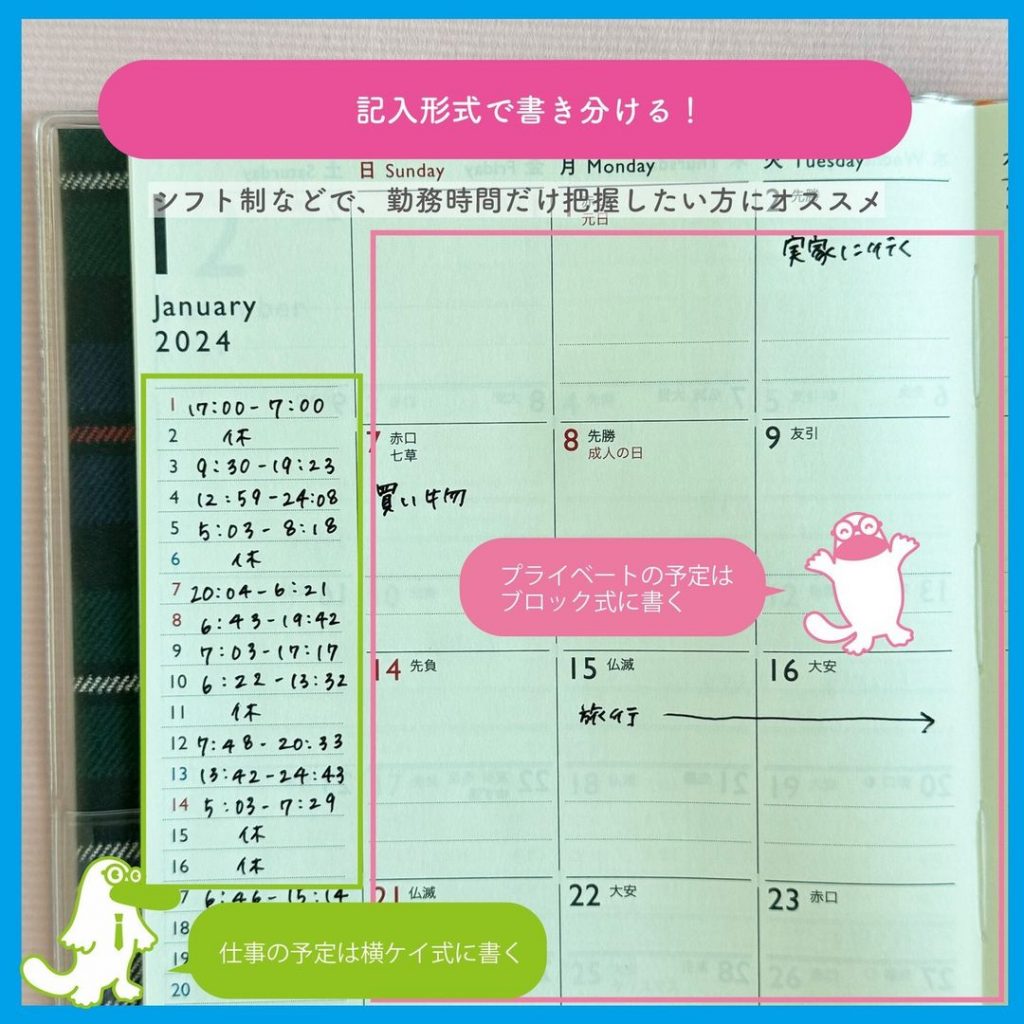 記入形式で書き分ける！
日 Sunday
月 Monday
火 Tuesday
シフト制などで、勤務時間だけ把握したい方にオススメ
1
元日
2 先勝
実家に行く
January
2024
1 17:00-7:00
2 休
3 9:30-19:23
4 12:59-24:08
5 5:03-8:18
6 休
7 20:04-6:21
8 6:43-19:42
9 7:03-17:17
10 6:22-13:32
11 休
12 7:48-20:33
13 13:42-24:43
14 5:03-7:29
15 休
16 休
17 6:46-15:14
18
19
20
7 赤口
七草
買い物
8 先勝
成人の日
9 友引
プライベートの予定は
ブロック式に書く
14 先負
15 仏滅
旅行
16 大安
21 仏滅
22 大安
23 赤口
仕事の予定は横ケイ式に書く